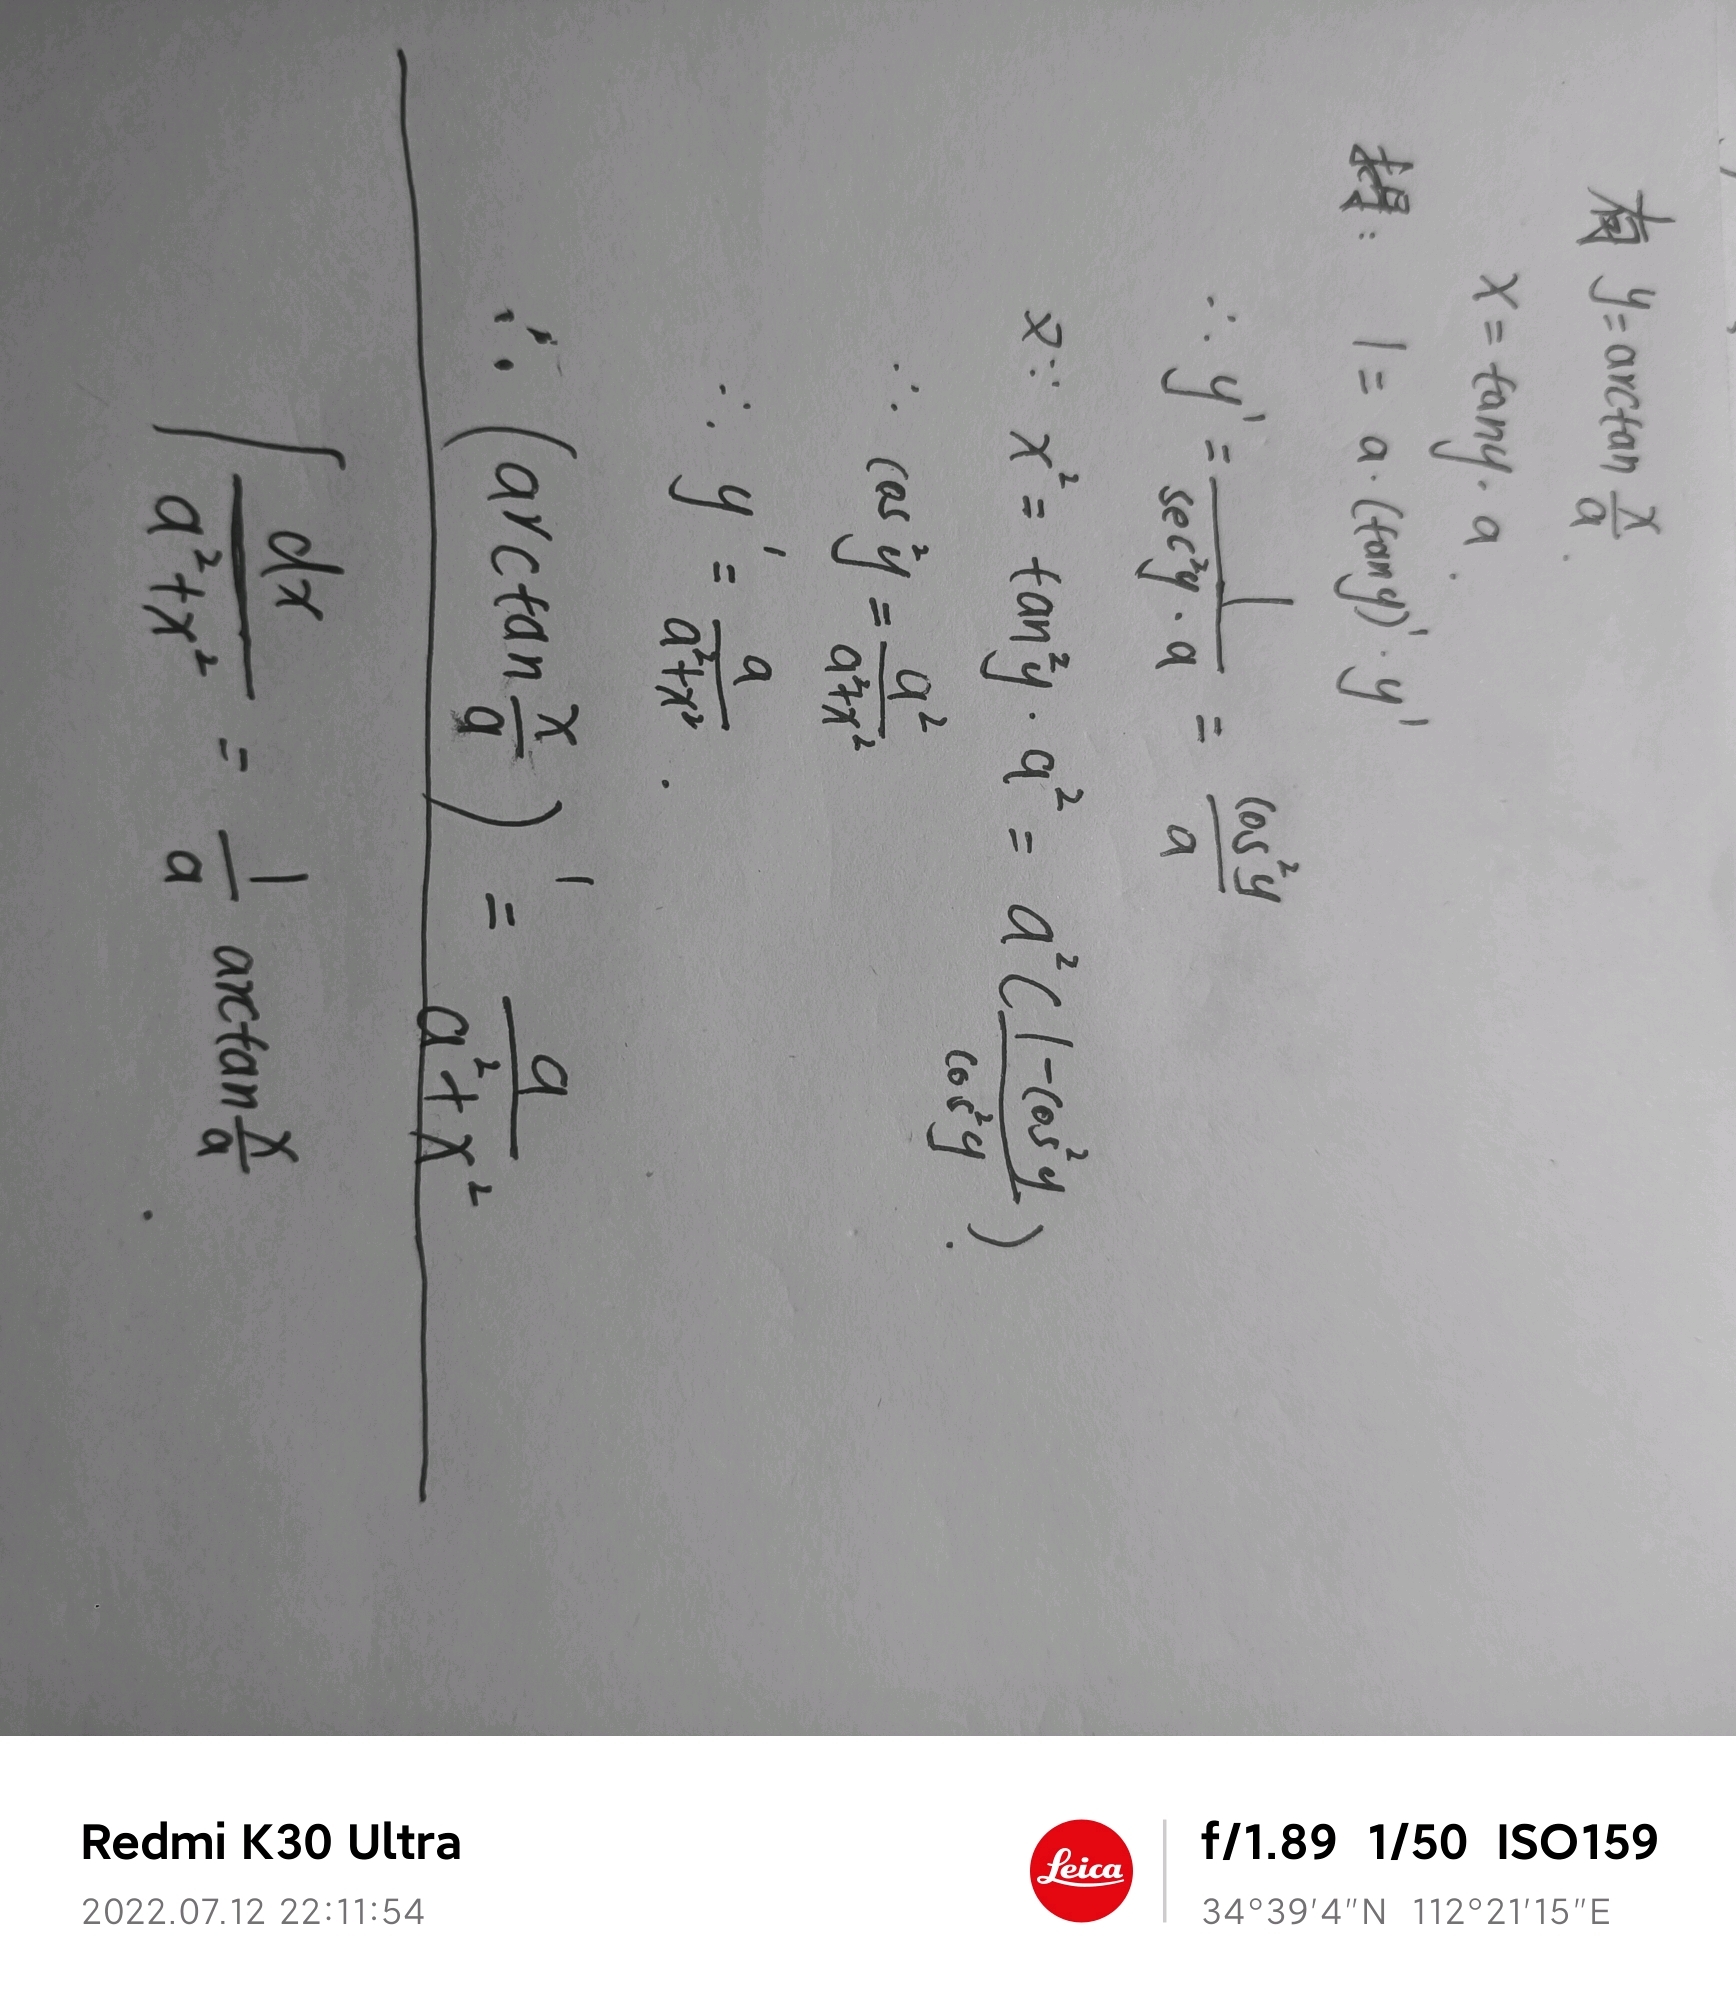 有 y=arctan x/a.
x = tany · a.
得: 1 = a · (tany)' · y'
∴ y' = 1/(sec²y · a) = cos²y/a
又∵ x² = tan²y · a² = a²((1-cos²y)/cos²y).
∴ cos²y = a²/(a²+x²)
∴ y' = a/(a²+x²).
∴ (arctan x/a)' = a/(a²+x²)
∫ dx/(a²+x²) = 1/a arctan x/a.
Redmi K30 Ultra
2022.07.12 22:11:54
Leica
f/1.89 1/50 ISO159
34°39'4"N 112°21'15"E